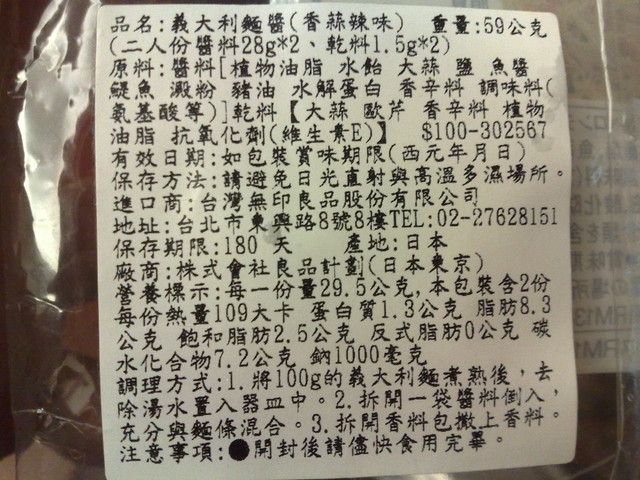 品名:義大利麵醬(香蒜辣味) 重量:59公克
(二人份醬料28g*2、乾料1.5g*2)
原料:醬料[植物油脂 水飴 大蒜 鹽 魚醬
鯷魚 澱粉 豬油 水解蛋白 香辛料 調味料(
氨基酸等)]乾料【大蒜 歐芹 香辛料 植物
油脂 抗氧化劑(維生素E)】 $100-302567
有效日期:如包裝賞味期限(西元年月日)
保存方法:請避免日光直射與高溫多濕場所。
進口商:台灣無印良品股份有限公司
地址:台北市東興路8號8樓TEL:02-27628151
保存期限:180 天 產地:日本
廠商:株式會社良品計劃(日本東京)
營養標示:每一份量29.5公克,本包裝含2份
每份熱量109大卡 蛋白質1.3公克 脂肪8.3
公克 飽和脂肪2.5公克 反式脂肪0公克 碳
水化合物7.2公克 鈉1000毫克
調理方式:1.將100g的義大利麵煮熟後，去
除湯水置入器皿中。2.拆開一袋醬料倒入，
充分與麵條混合。3.拆開香料包撒上香料。
注意事項:●開封後請儘快食用完畢。